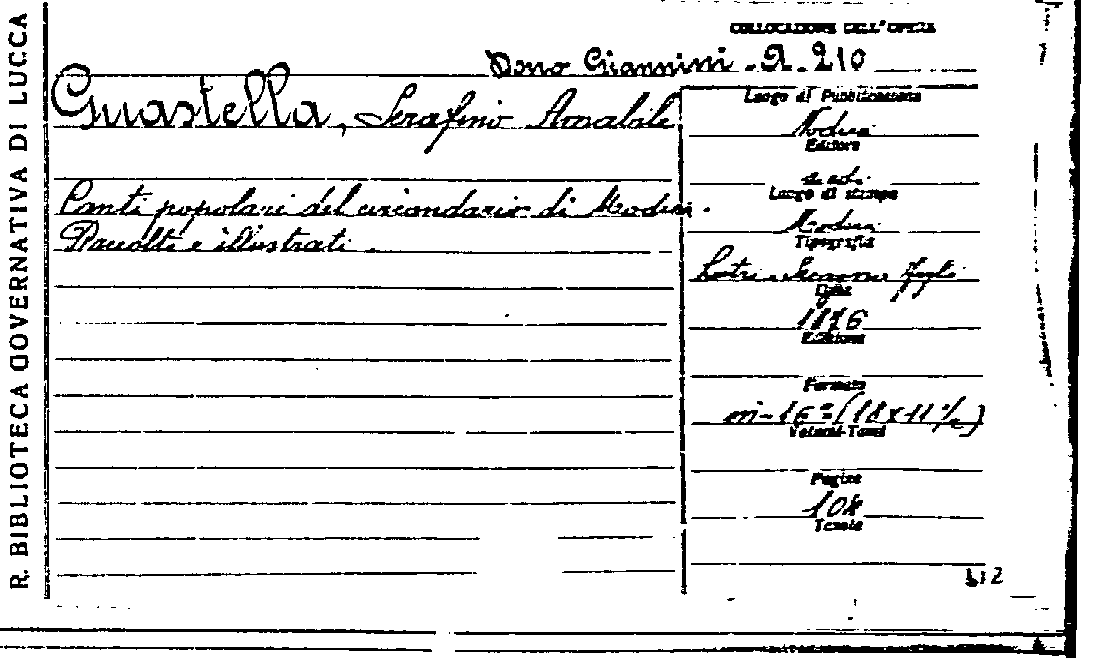 R. BIBLIOTECA GOVERNATIVA DI LUCCA
COLLOCAZIONE DELL'OPERA
Dono Giannini - A. 210
Guastella, Serafino Amabile
Canti popolari del circondario di Modica.
Raccolti e illustrati.
Luogo di Pubblicazione
Modica
Editore
Luogo di stampa
Modica
Tipografia
Lutri e Secagno figli
Data
1876
Edizione
Formato
in-16° (18x11½)
Volumi-Tomi
Pagine
108
Tavole